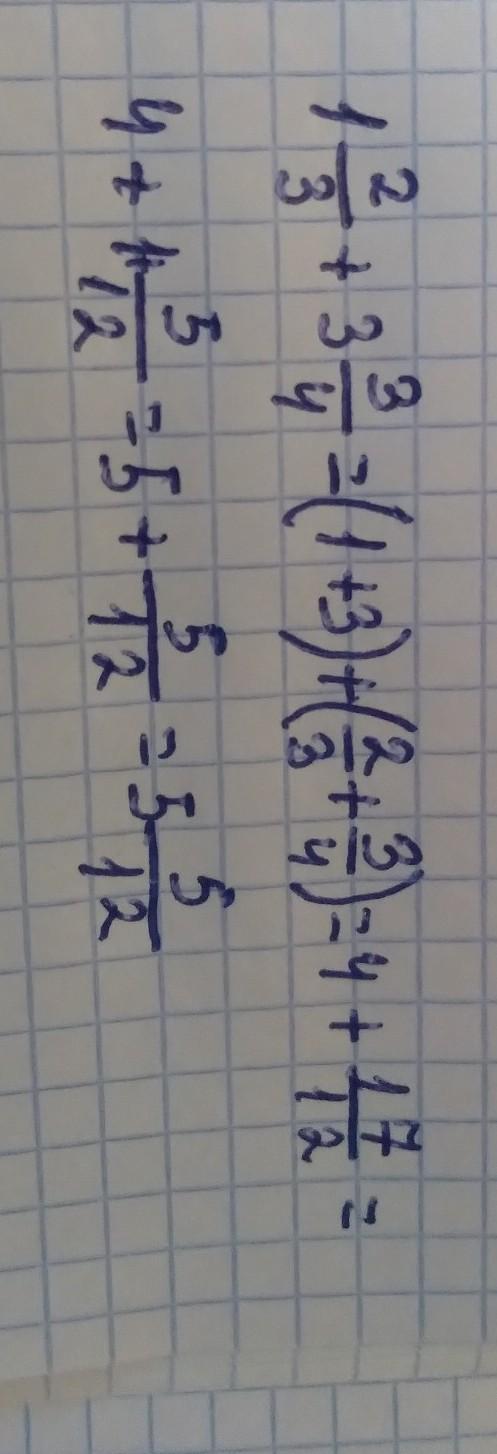 1 2/3 + 3 3/4 = (1 + 3) + (2/3 + 3/4) = 4 + 17/12 =
4 + 1 5/12 = 5 + 5/12 = 5 5/12